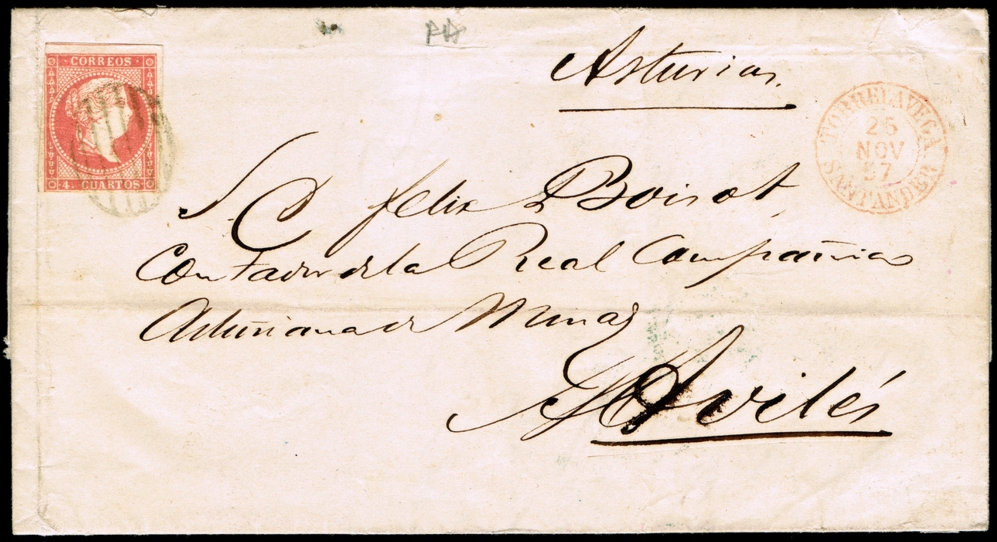 PD
Asturias.
CORREOS
4. CUARTOS
TORRELAVEGA
26
NOV
57
SANTANDER
S. D. Felix Boisot,
Contador de la Real Compañia
Asturiana de Minas
Avilés